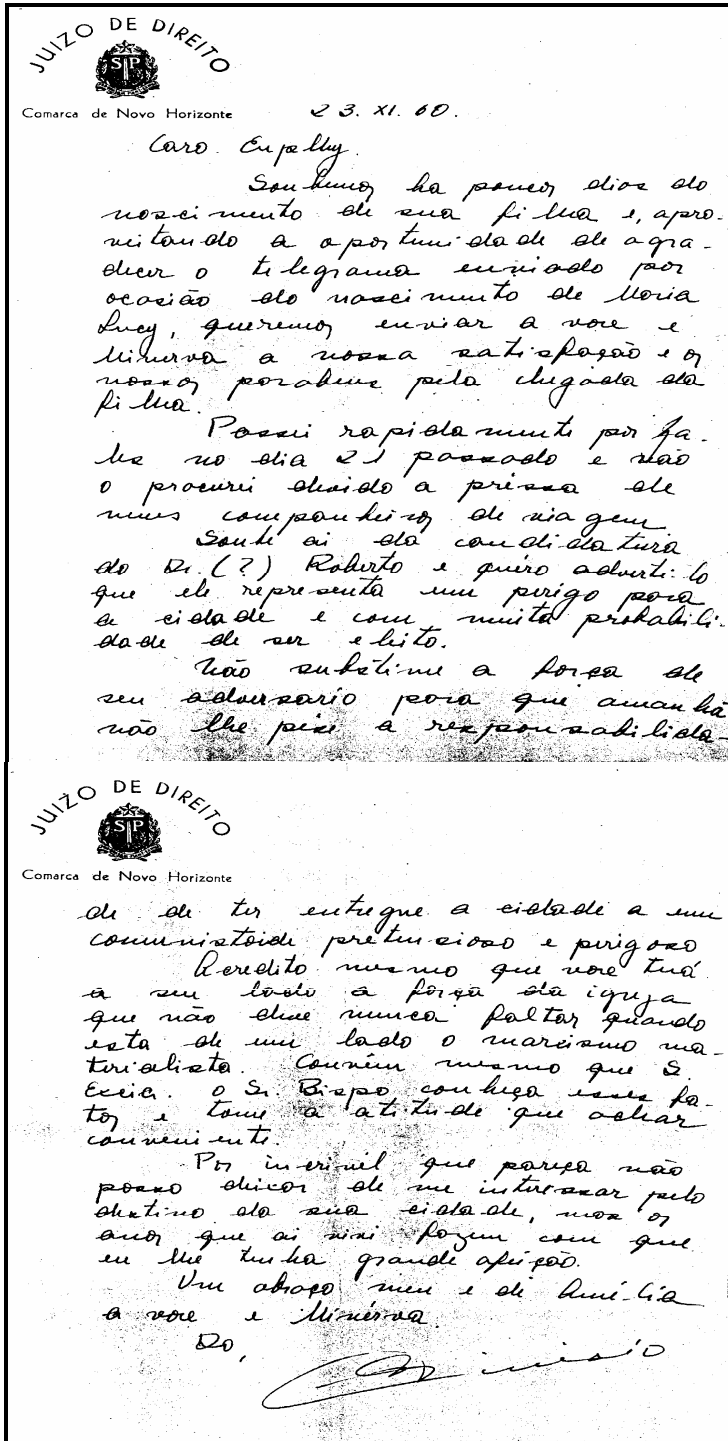 JUIZO DE DIREITO
SP
Comarca de Novo Horizonte
23. XI. 60.
Caro
Soubemos ha poucos dias do
nascimento de sua filha e, apro-
veitando a oportunidade de agra-
decer o telegrama enviado por
ocasião do nascimento de Maria
Lucy, queremos enviar a voce e
Minerva a nossa satisfação e os
nossos parabens pela chegada da
filha.
Passei rapidamente por Ja-
les no dia 21 passado e não
o procurei devido a pressa de
meus companheiros de viagem
Soube ai da candidatura
do Dr. (?) Roberto e quero adverti-lo
que ele representa um perigo para
a cidade e com muita probabili-
dade de ser eleito.
Não subestime a força de
seu adversario para que amanhã
não lhe pese a responsabilida-
JUIZO DE DIREITO
SP
Comarca de Novo Horizonte
de de ter entregue a cidade a um
comunistoide pretensioso e perigoso
Acredito mesmo que voce terá
a seu lado a força da igreja
que não deve nunca faltar quando
esta de um lado o marxismo ma-
terialista. Convém mesmo que S.
Excia. o Sr. Bispo conheça esses fa-
tos e tome a atitude que achar
conveniente.
Por incrivel que pareça não
posso deixar de me interessar pelo
destino da sua cidade, mas os
anos que ai vivi fazem com que
eu lhe tenha grande afeição.
Um abraço meu e de Amélia
a voce e Minerva.
Do,